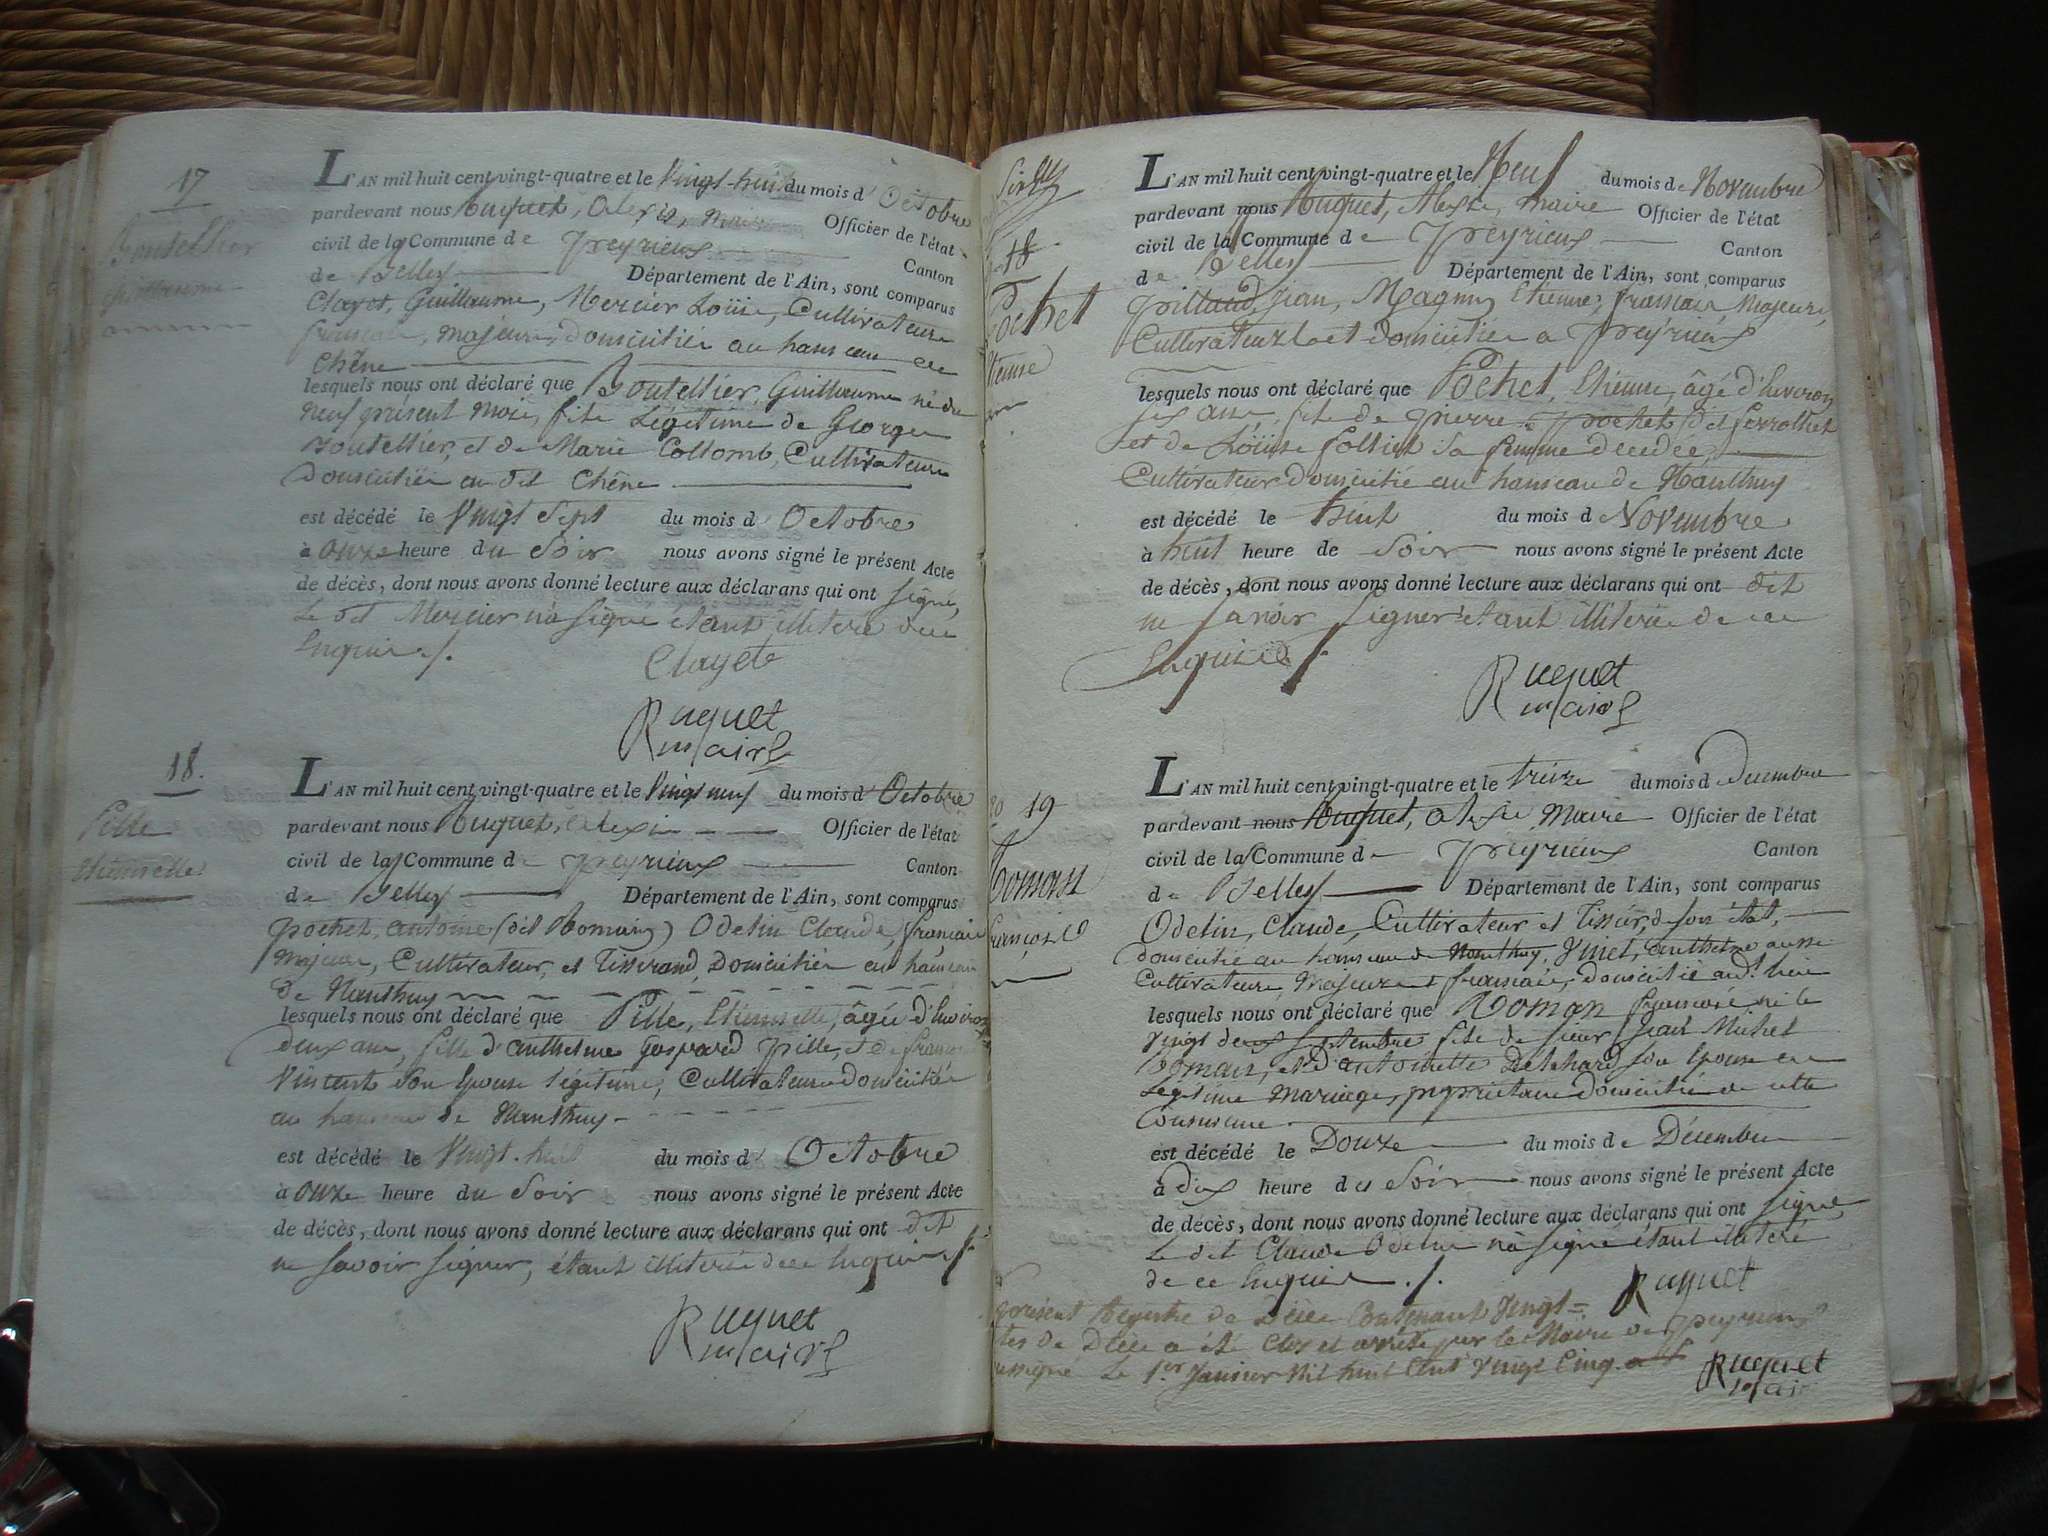 17
Boutellier
Guillaume
L'AN mil huit cent vingt-quatre et le Vingt-huit du mois d'Octobre
pardevant nous Ruquet, Alexis, Maire Officier de l'état
civil de la Commune de Peyrieux Canton
de Belley Département de l'Ain, sont comparus
Clayet, Guillaume, Mercier Loüis, Cultivateurs
français, majeurs, domiciliés au hameau de
Chêne
lesquels nous ont déclaré que Boutellier, Guillaume né du
neuf présent mois, fils Légitime de George
Boutellier, et de Marie Collomb, Cultivateurs
Domiciliés au dit Chêne
est décédé le Vingt Sept du mois d'Octobre
à Onze heure du Soir nous avons signé le présent Acte
de décès, dont nous avons donné lecture aux déclarans qui ont signé,
Le dit Mercier n'a signé étant illiteré de ce
Enquis ./.
Clayet
Ruquet
maire
18.
Pille
Etiennette
L'AN mil huit cent vingt-quatre et le Vingt neuf du mois d'Octobre
pardevant nous Ruquet, Alexis Officier de l'état
civil de la Commune de Peyrieux Canton
de Belley Département de l'Ain, sont comparus
Pochet, antoine (dit Romain) Odelin Claude, français
Majeurs, Cultivateur, et Tisserand, Domiciliés au hameau
de Nanthuy
lesquels nous ont déclaré que Pille, Etiennette, âgée d'Environ
deux ans, fille d'anthelme Gaspard Pille, et de françoise
Vincent son Epouse légitime, Cultivateurs Domiciliés
au hameau de Nanthuy
est décédé le Vingt-huit du mois d'Octobre
à Onze heure du Soir nous avons signé le présent Acte
de décès, dont nous avons donné lecture aux déclarans qui ont dit
ne savoir signer, étant illiterés de ce Enquis ./.
Ruquet
maire
18
Pochet
Etienne
L'AN mil huit cent vingt-quatre et le Neuf du mois de Novembre
pardevant nous Ruquet, Alexis, maire Officier de l'état
civil de la Commune de Peyrieux Canton
de Belley Département de l'Ain, sont comparus
Pillaud, Jean, Magnin Etienne, français Majeurs,
Cultivateurs et domiciliés a Peyrieux
lesquels nous ont déclaré que Pochet, Etienne, âgé d'Environ
ans, fils de Pierre Pochet dit
et de Loüise Folliet sa femme décédée,
Cultivateur domicilié au hameau de Nanthuy
est décédé le huit du mois d Novembre
à huit heure de Soir nous avons signé le présent Acte
de décès, dont nous avons donné lecture aux déclarans qui ont dit
ne savoir signer étant illiterés de ce
Enquis ./.
Ruquet
maire
19
Romain
françois
L'AN mil huit cent vingt-quatre et le treize du mois d Decembre
pardevant nous Ruquet, Alexis Maire Officier de l'état
civil de la Commune de Peyrieux Canton
de Belley Département de l'Ain, sont comparus
Odelin, Claude, Cultivateur et Tissier, de son état,
domicilié au hameau de Nanthuy, Jinet, Anthelme aussi
Cultivateur, Majeurs et français, domicilié aud.t lieu
lesquels nous ont déclaré que Roman françois né le
Vingt deux Septembre fils de sieur Jean Michel
Romain, et d'antoinette son Epouse en
Légitime Mariage, propriétaire domiciliés de cette
Commune.
est décédé le Douze du mois de Décembre
à dix heure du Soir nous avons signé le présent Acte
de décès, dont nous avons donné lecture aux déclarans qui ont signé,
Le dit Claude Odelin n'a signé étant illiteré
de ce Enquis ./. Ruquet
présent Registre de Décès Contenant Vingt=
tes de Décès a été Clos et arrêté par le Maire de Peyrieux
ussigné Le 1.er Janvier Mil huit Cent Vingt Cinq. Ruquet
Maire